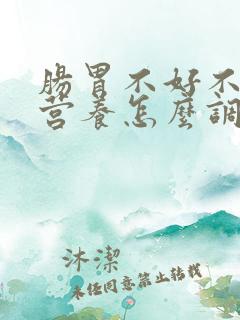 腸胃不好不
营養怎麼調
沐潔
未经同意禁止转载